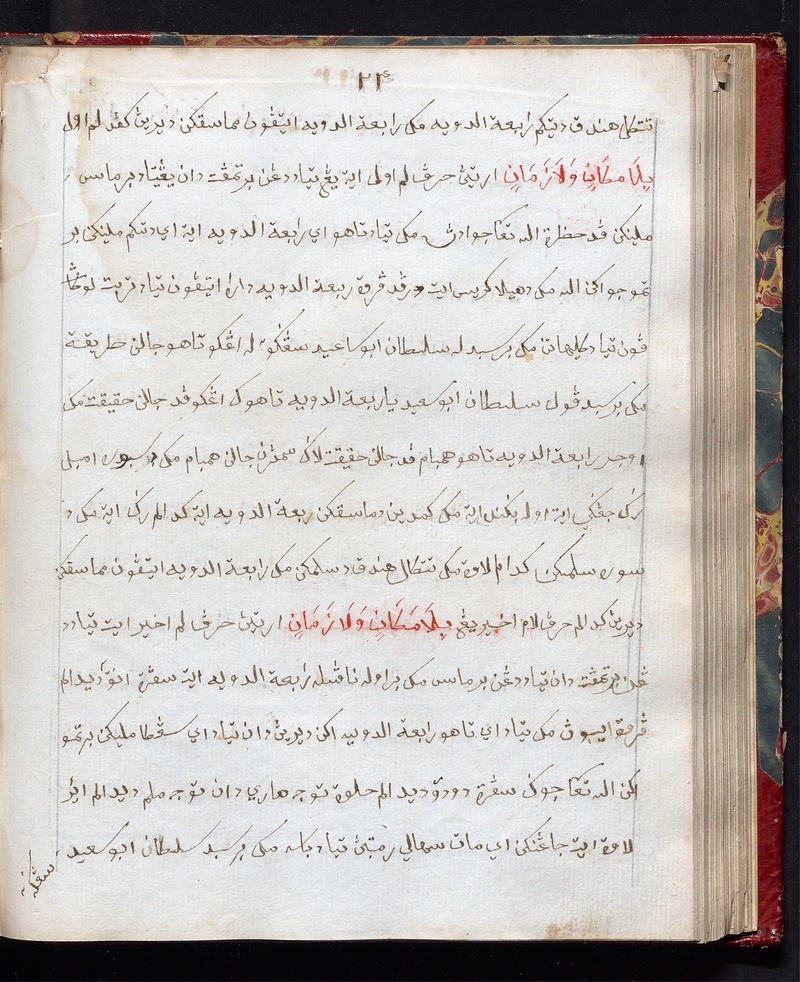 ٢٢٤
تتكل هندق دتيكم رابعة الدويه مك رابعة الدويه ايتڤون مماسقكن ديرين كفد لم اول
بِلَامَكَانٍ وَلَازَمَانٍ ارتين حرف لم اولى ايت يڠ تياد دڠن برتمڤت دان يڠتياد برماس
ملينكن ڤد حظرة الله تعاجوا مك تياد تاهو اي رابعة الدويه ايت اي دتكم ملينكن بر
تمو جواكن الله مك دهيلا كريس ايت در ڤد ڤرة ربعة الدويه دارا ايتڤون تياد تربت لوك
ڤون تياد كلهاتن مك برسبدله سلطان ابو سعيد سڠكوله اڠكو تاهو جالن طريقة
مك برسبد ڤول سلطان ابو سعيد يا ربعة الدويه تاهوك اڠكو ڤد جالن حقيقت مك
اوجر رابعة الدويه تاهو همبام ڤد جالن حقيقت لاك سمڤرن جالن همبام مك دسوره امبل
رڠ ايت اوله ايت مك كمدين دماسقكن ربعة الدويه ايت كدالم رڠ ايت مك د
سوره سلمكن كدالم لاوة مك تتكل هندق دسلمكن مك رابعة الدويه ايتڤون مماسقكن
ديرين كدالم حرف لام اخير يڠ بِلَامَكَانٍ وَلَا زَمَانٍ ارتين حرف لم اخير ايت تياد د
ڠن برتمڤت دان تياد دڠن برماس مك براوله نافسله رابعة الدويه ايت سڤرة انق ديدالم
ڤرة ايبون مك تياد اي تاهو رابعة الدويه اكن ديرين دان تياد اي سڠكا ملينكن برتمو
اكن الله تعاجوك سڤرة دودق ديدالم حلوة توجه هاري دان توجه ملم ديدالم اير
لاوة ايت جاڠنكن اي مات سهالي رمبتن تياد باسه مك برسبد سلطان ابو سعيد
سڠكله